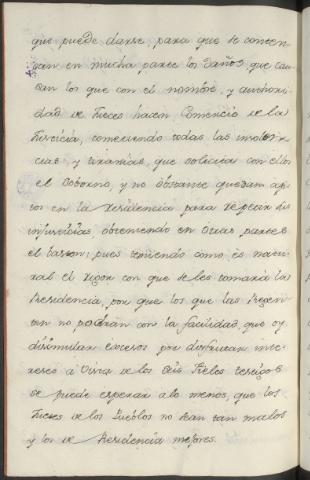 que puede darse para que se conten-
gan en mucha parte los daños que cau-
san los que con el nombre, y authori-
dad de Jueces hacen Comercio de la
Justicia, cometiendo todas las
y tiranias, que solicita con ellos
el Soborno, y no obstante quedan ap-
tos en la Residencia para repetir sus
injusticias obteniendo en otras partes
el baston; pues temiendo como es natu-
ral el rigor con que se les tomará la
Residencia, por que los que las
tan no podrán con la facilidad, que oy
disimular excesos por disfrutar inte-
reses a vista de los seis Fieles testigos
se puede esperar alo menos, que los
Jueces de los Pueblos no sean tan malos
y los de Residencia mejores.